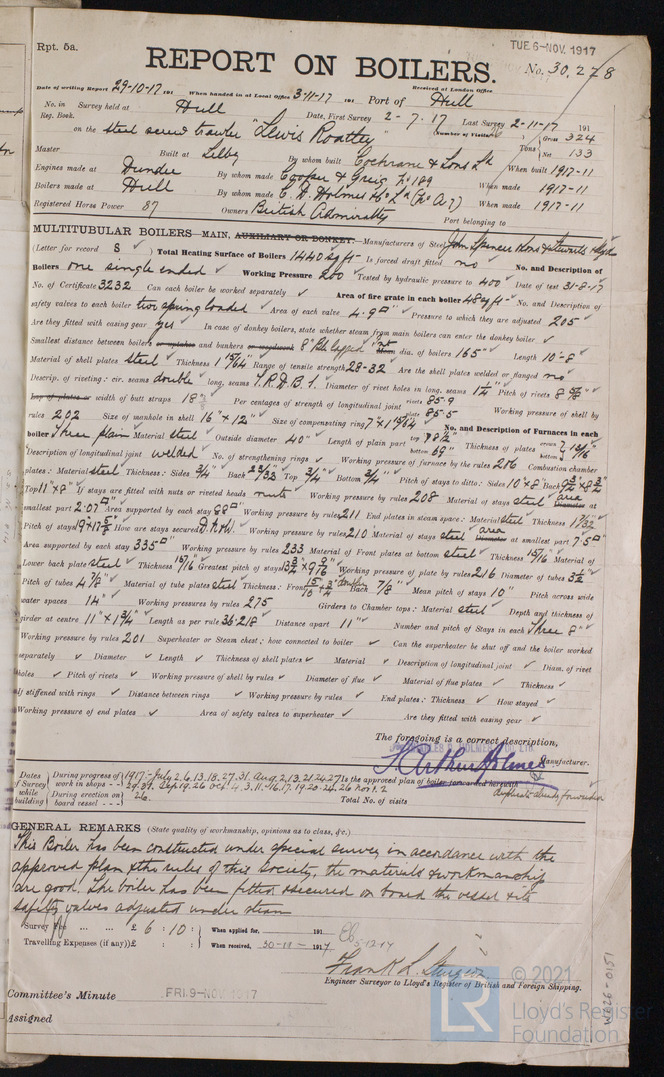 Rpt. 5a.
TUE 6-NOV. 1917
REPORT ON BOILERS.
No. 30,278
Received at London Office
Date of writing Report 29-10-17 191 When handed in at Local Office 3-11-17 191 Port of Hull
No. in Reg. Book. Survey held at Hull Date, First Survey 2-7-17 Last Survey 2-11-17 191
on the steel screw trawler "Lewis Roatley" (Number of Visits
Tons Gross 324
Net 133
Master Built at Selby By whom built Cochrane & Sons Ld When built 1917-11
Engines made at Dundee By whom made Cooper & Greig No 189 When made 1917-11
Boilers made at Hull By whom made C. D. Holmes & Co Ld When made 1917-11
Registered Horse Power 87 Owners British Admiralty Port belonging to
MULTITUBULAR BOILERS – MAIN, AUXILIARY OR DONKEY.— Manufacturers of Steel John Spencer & Sons & Stewarts & Lloyds
(Letter for record S ) Total Heating Surface of Boilers 1440 sq ft Is forced draft fitted no No. and Description of
Boilers one single ended Working Pressure 200 Tested by hydraulic pressure to 400 Date of test 31-8-17
No. of Certificate 3232 Can each boiler be worked separately ✓ Area of fire grate in each boiler 48 sq ft No. and Description of
safety valves to each boiler two spring loaded Area of each valve 4.9□" Pressure to which they are adjusted 205
Are they fitted with easing gear yes In case of donkey boilers, state whether steam from main boilers can enter the donkey boiler ✓
Smallest distance between boilers or uptakes and bunkers or woodwork 8" Blk lagged Int dia. of boilers 165" Length 10'-8
Material of shell plates steel Thickness 1 15/64" Range of tensile strength 28-32 Are the shell plates welded or flanged no
Descrip. of riveting: cir. seams double long. seams T.R.D.B.S. Diameter of rivet holes in long. seams 1 1/4" Pitch of rivets 8 5/8"
Lap of plates or width of butt straps 18 Per centages of strength of longitudinal joint rivets 85.9
plate 85.5 Working pressure of shell by
rules 202 Size of manhole in shell 16" x 12" Size of compensating ring 7" x 1 19/64 No. and Description of Furnaces in each
boiler Three plain Material steel Outside diameter 40" Length of plain part top 78 1/2"
bottom 69" Thickness of plates crown
bottom
Description of longitudinal joint welded No. of strengthening rings ✓ Working pressure of furnace by the rules 206 Combustion chamber
plates: Material steel Thickness: Sides 3/4" Back 23/32 Top 3/4" Bottom 3/4" Pitch of stays to ditto: Sides 10" x 8" Back
Top 11" x 8" If stays are fitted with nuts or riveted heads nuts Working pressure by rules 208 Material of stays steel area Diameter at
smallest part 2.07□" Area supported by each stay 88□" Working pressure by rules 211 End plates in steam space: Material steel Thickness 1 7/32
Pitch of stays How are stays secured D.N.&W. Working pressure by rules 210 Material of stays steel area Diameter at smallest part 7.5□"
Area supported by each stay 335□" Working pressure by rules 233 Material of Front plates at bottom steel Thickness 15/16" Material of
Lower back plate steel Thickness 15/16 Greatest pitch of stays Working pressure of plate by rules 216 Diameter of tubes 3 1/2"
Pitch of tubes 4 7/8" Material of tube plates steel Thickness: Front Back 7/8" Mean pitch of stays 10" Pitch across wide
water spaces 14" Working pressures by rules 275 Girders to Chamber tops: Material steel Depth and thickness of
girder at centre 11" x 1 3/4" Length as per rule 36.218 Distance apart 11" Number and pitch of Stays in each Three 8"
Working pressure by rules 201 Superheater or Steam chest; how connected to boiler ✓ Can the superheater be shut off and the boiler worked
separately ✓ Diameter ✓ Length ✓ Thickness of shell plates ✓ Material ✓ Description of longitudinal joint ✓ Diam. of rivet
holes ✓ Pitch of rivets ✓ Working pressure of shell by rules ✓ Diameter of flue ✓ Material of flue plates ✓ Thickness ✓
If stiffened with rings ✓ Distance between rings ✓ Working pressure by rules ✓ End plates: Thickness ✓ How stayed ✓
Working pressure of end plates ✓ Area of safety valves to superheater ✓ Are they fitted with easing gear ✓
The foregoing is a correct description,
Arthur Holmes Manufacturer.
Dates of Survey while building
During progress of work in shops - - 1917- July 2.6.13.18.27.31. Aug. 2.13.21.24.27 Is the approved plan of boiler forwarded herewith
29.31. Sep. 19.26 Oct. 4.3.11.16.17.19.20.24.26 Nov 1.2
During erection on board vessel - - - 26. Total No. of visits
Duplicate already forwarded
GENERAL REMARKS (State quality of workmanship, opinions as to class, &c.)
This Boiler has been constructed under special survey in accordance with the
approved plan & the rules of this Society, the materials & workmanship
are good. The boiler has been fitted & secured on board the vessel & its
safety valves adjusted under steam
Survey Fee ... ... £ 6 : 10 : When applied for, 191
Travelling Expenses (if any) £ : : When received, 30-11-1917 5-12-17
Frank L. Sturgeon
Engineer Surveyor to Lloyd's Register of British and Foreign Shipping.
Committee's Minute FRI. 9-NOV. 1917
Assigned
W926-0151
© 2021
LR
Lloyd's Register
Foundation